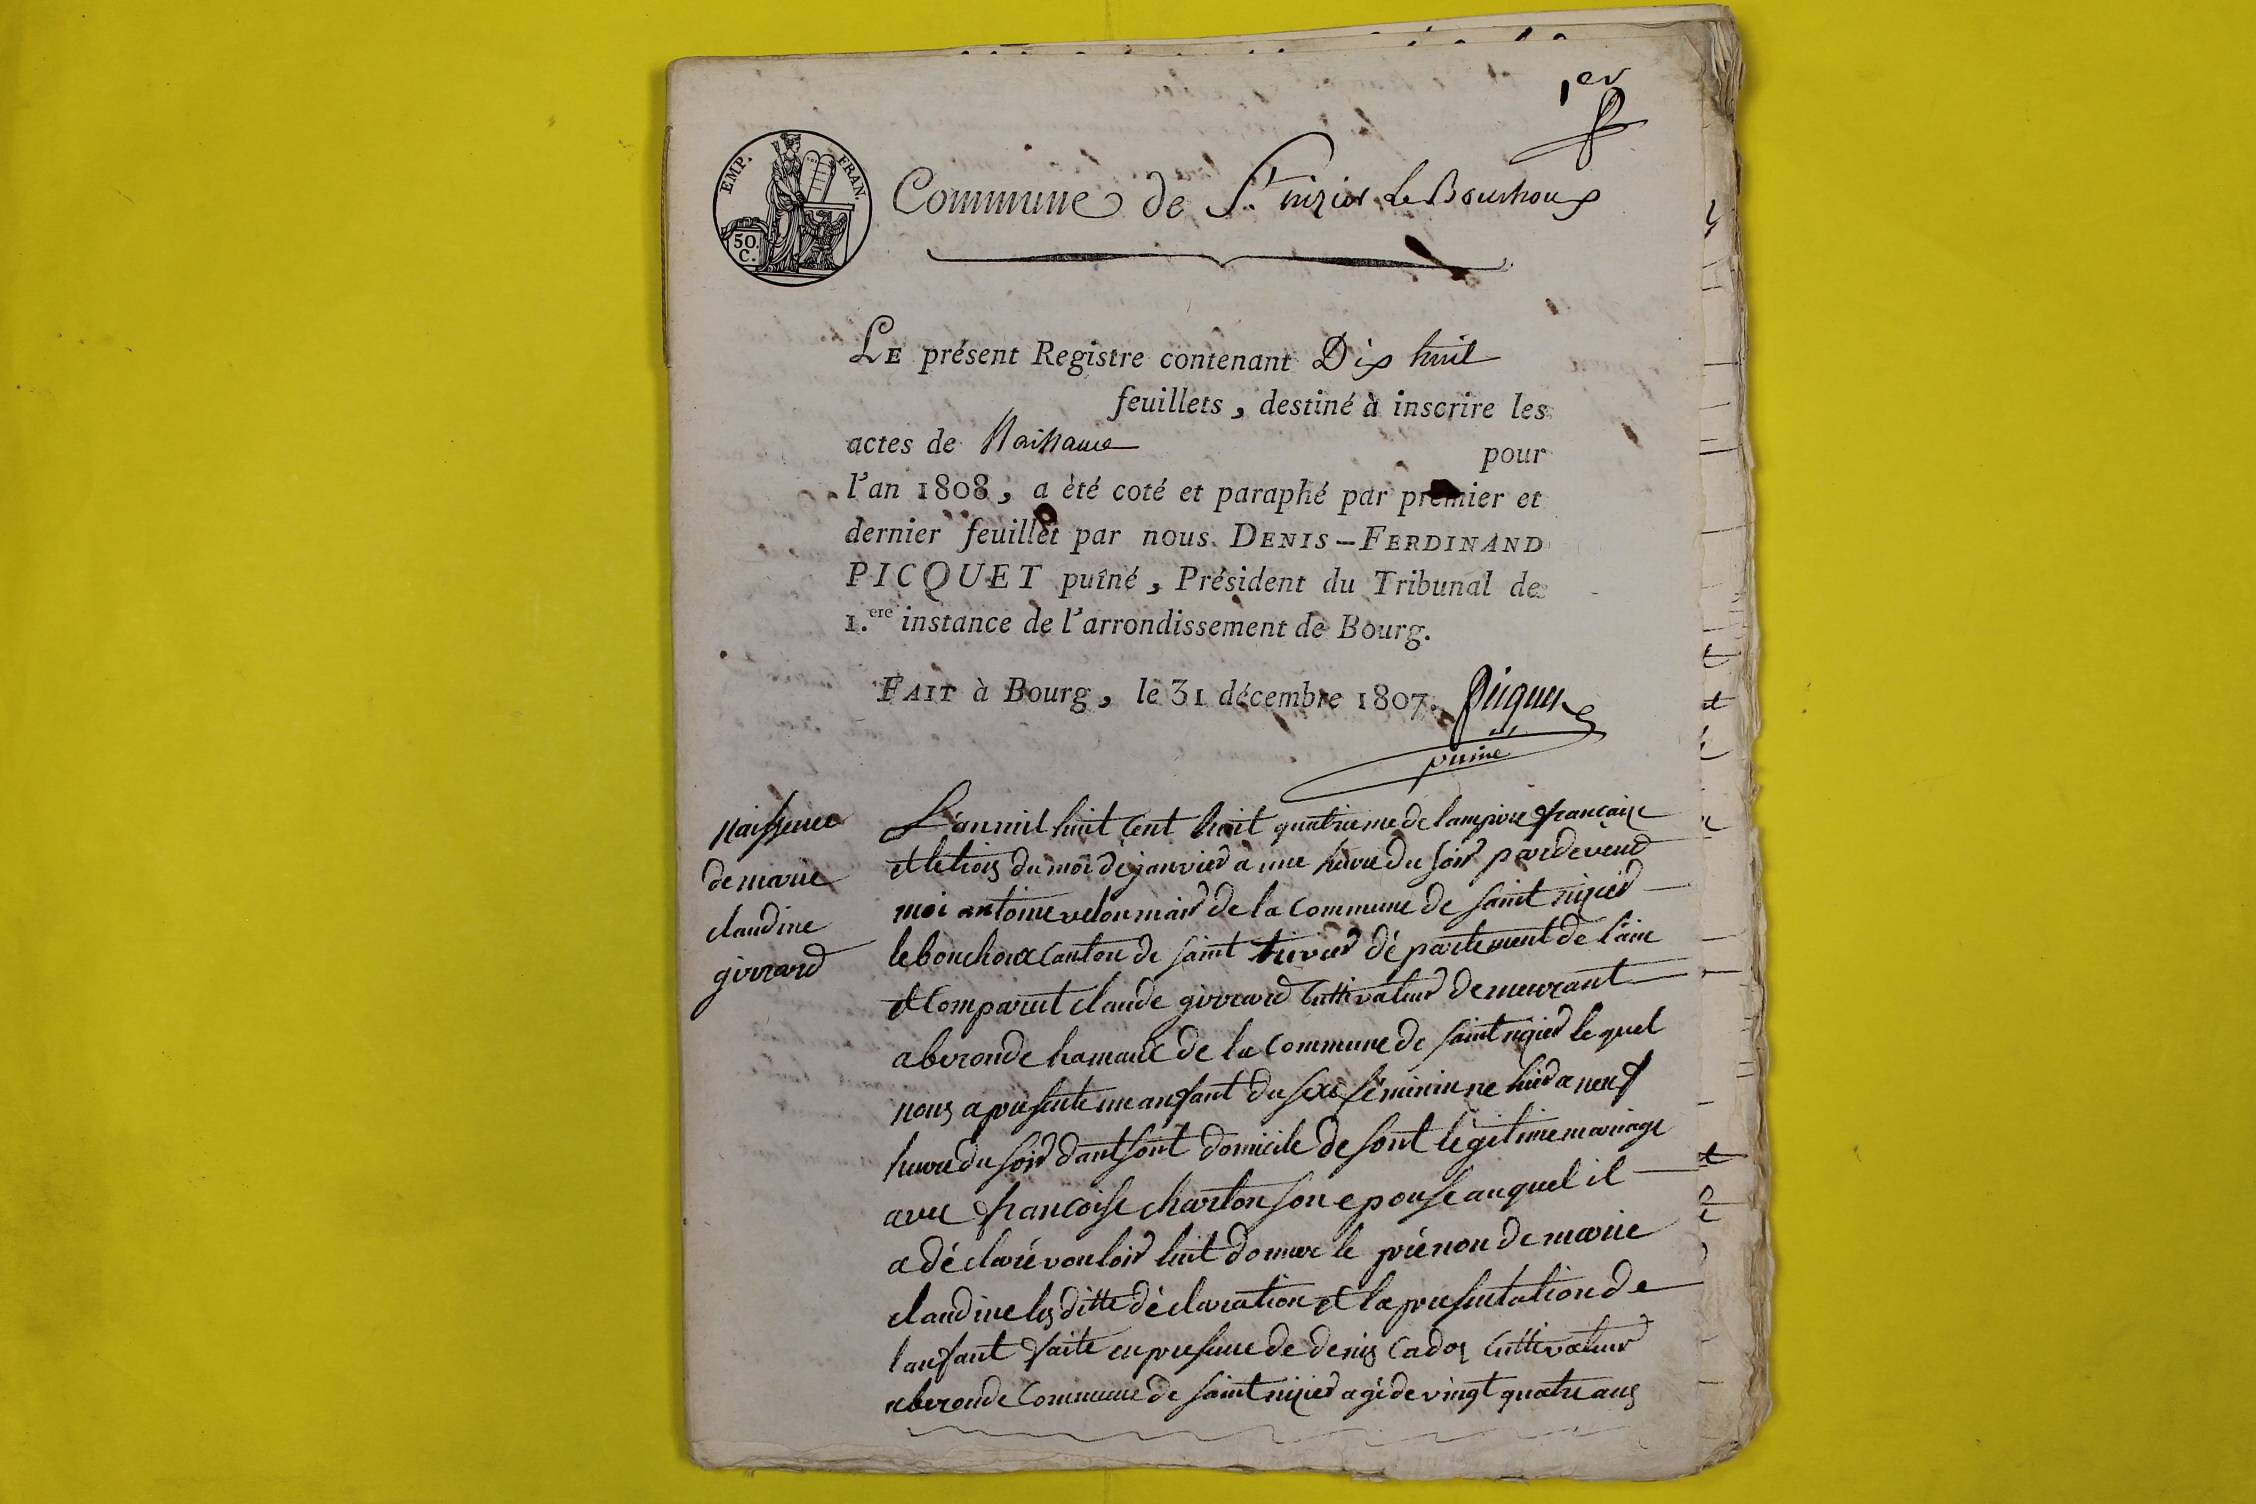 1er
EMP. FRAN.
50.
C.
Commune de St. nizier Le Bouchoux
LE présent Registre contenant Dix huit
feuillets, destiné à inscrire les
actes de Naissance pour
l'an 1808, a èté coté et paraphé par premier et
dernier feuillet par nous DENIS-FERDINAND
PICQUET puîné, Président du Tribunal de
1.ere instance de l'arrondissement de Bourg.
FAIT à Bourg, le 31 décembre 1807. Picquet
puiné
Naissence
de marie
claudine
girrard
L'an mil huit cent huit quatrieme de lampire francaise
et le trois du moi de janvier a une heure du soir pardevend
moi antoine velon mair de la commune de saint nizier
le bouchoux canton de saint trivier département de l'ain
et comparut claude girrard cultivateur demeurant
a beronde hamaux de la commune de saint nizier le quel
nous a presente un anfant du sexe feminin ne hier a neuf
heure du soir dant sont domicile de sont légitime mariage
avec francoise charton son epouse auquel il
a déclaré vouloir luit donner le prénon de marie
claudine les ditte déclaration et la presentation de
lanfant faite en presence de denis cadoz cultivateur
a beronde commune de saint nizier agé de vingt quatre ans